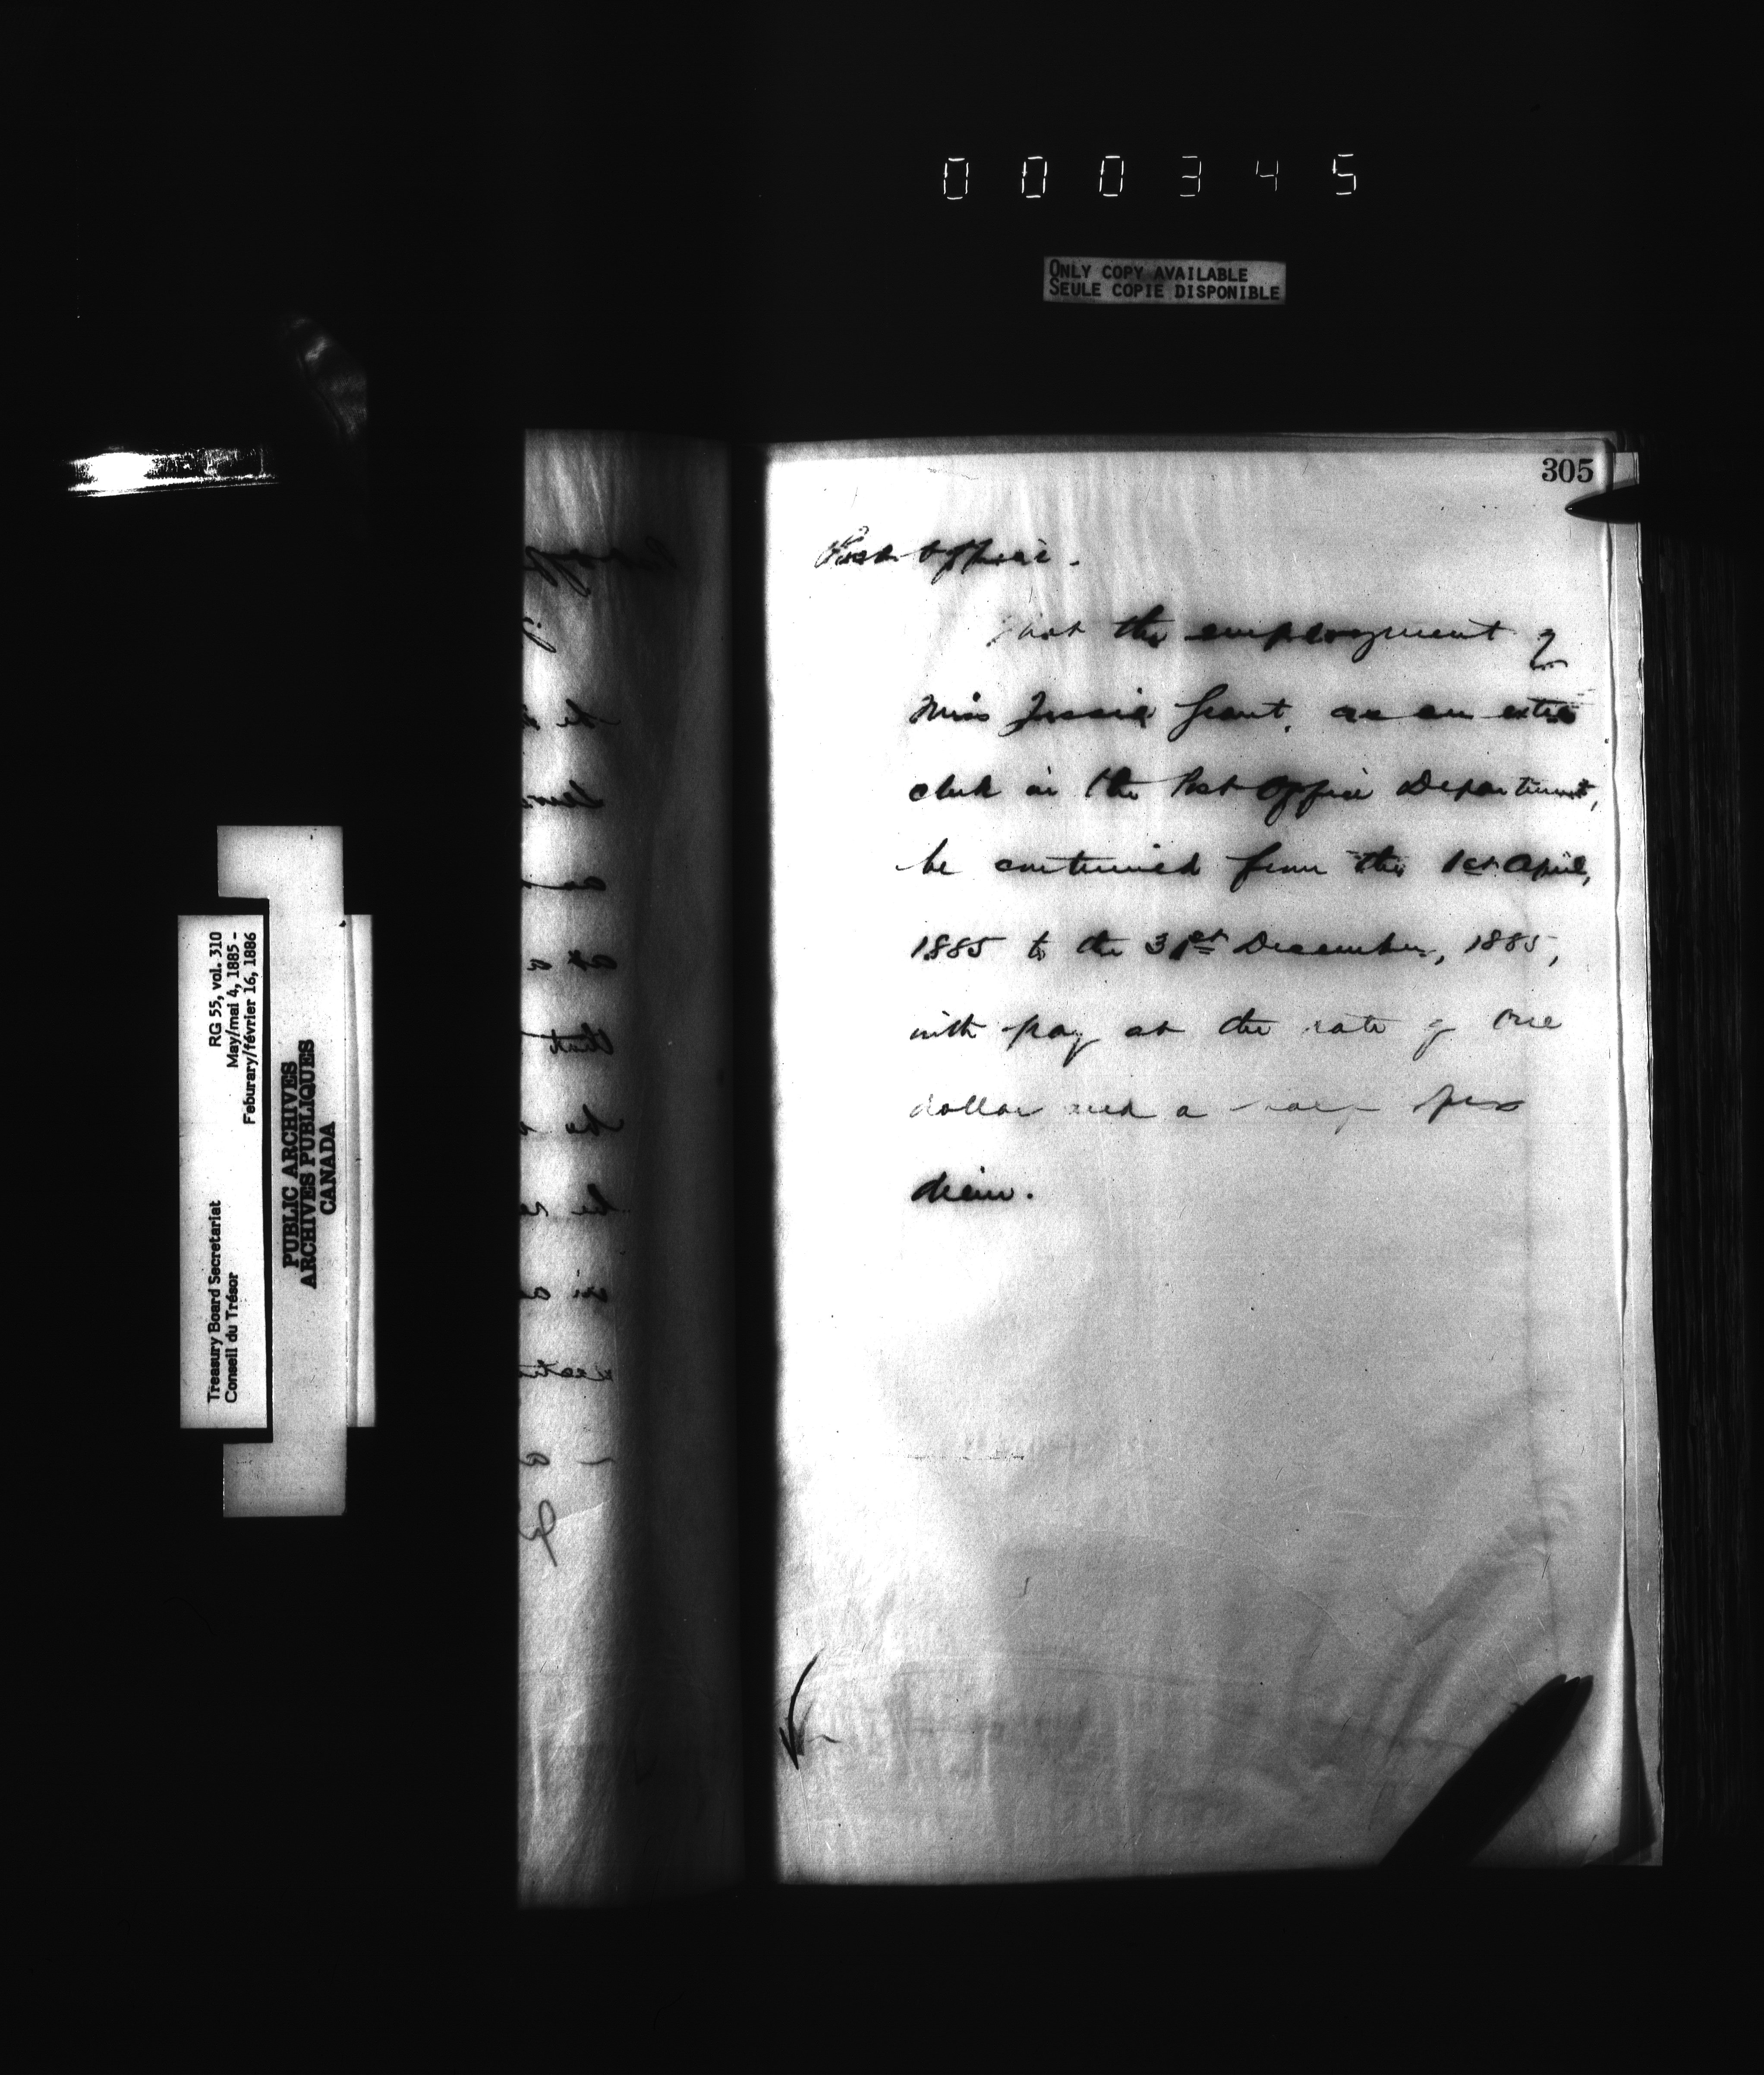 000345
ONLY COPY AVAILABLE
SEULE COPIE DISPONIBLE
305
Post Office.
That the employment of
Miss Jessie Grant, as an extra
clerk in the Post Office Department,
be continued from the 1st April,
1885 to the 31st December, 1885,
with pay at the rate of One
dollar and a half per
diem.
Treasury Board Secretariat RG 55, vol. 310
Conseil du Trésor May/mai 4, 1885 -
Feburary/février 16, 1886
PUBLIC ARCHIVES
ARCHIVES PUBLIQUES
CANADA